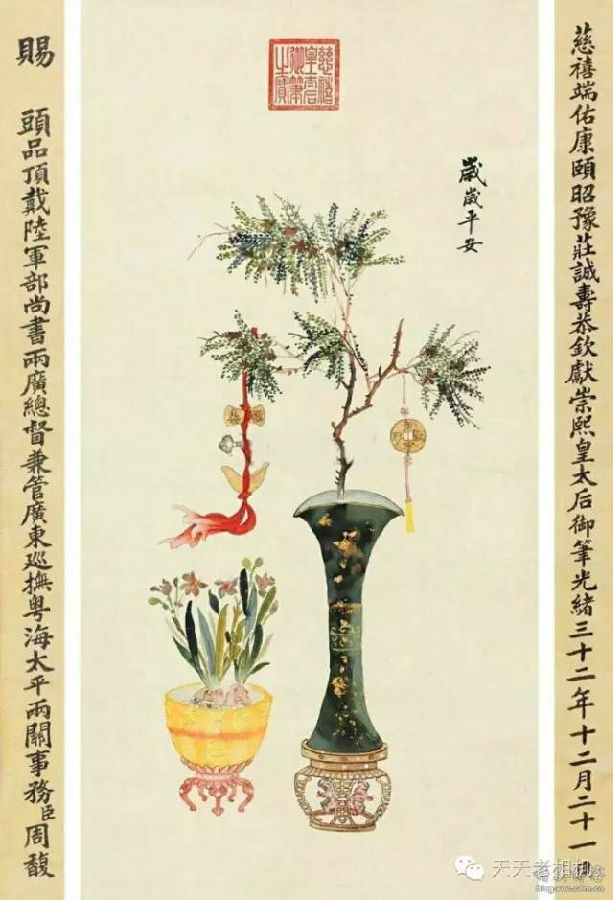 慈禧端佑康頤昭豫莊誠壽恭欽獻崇熙皇太后御筆光緒三十二年十二月二十一
歲歲平安
慈禧皇太后御筆之寶
賜 頭品頂戴陸軍部尚書兩廣總督兼管廣東巡撫粵海太平兩關事務臣周馥
天天老相机